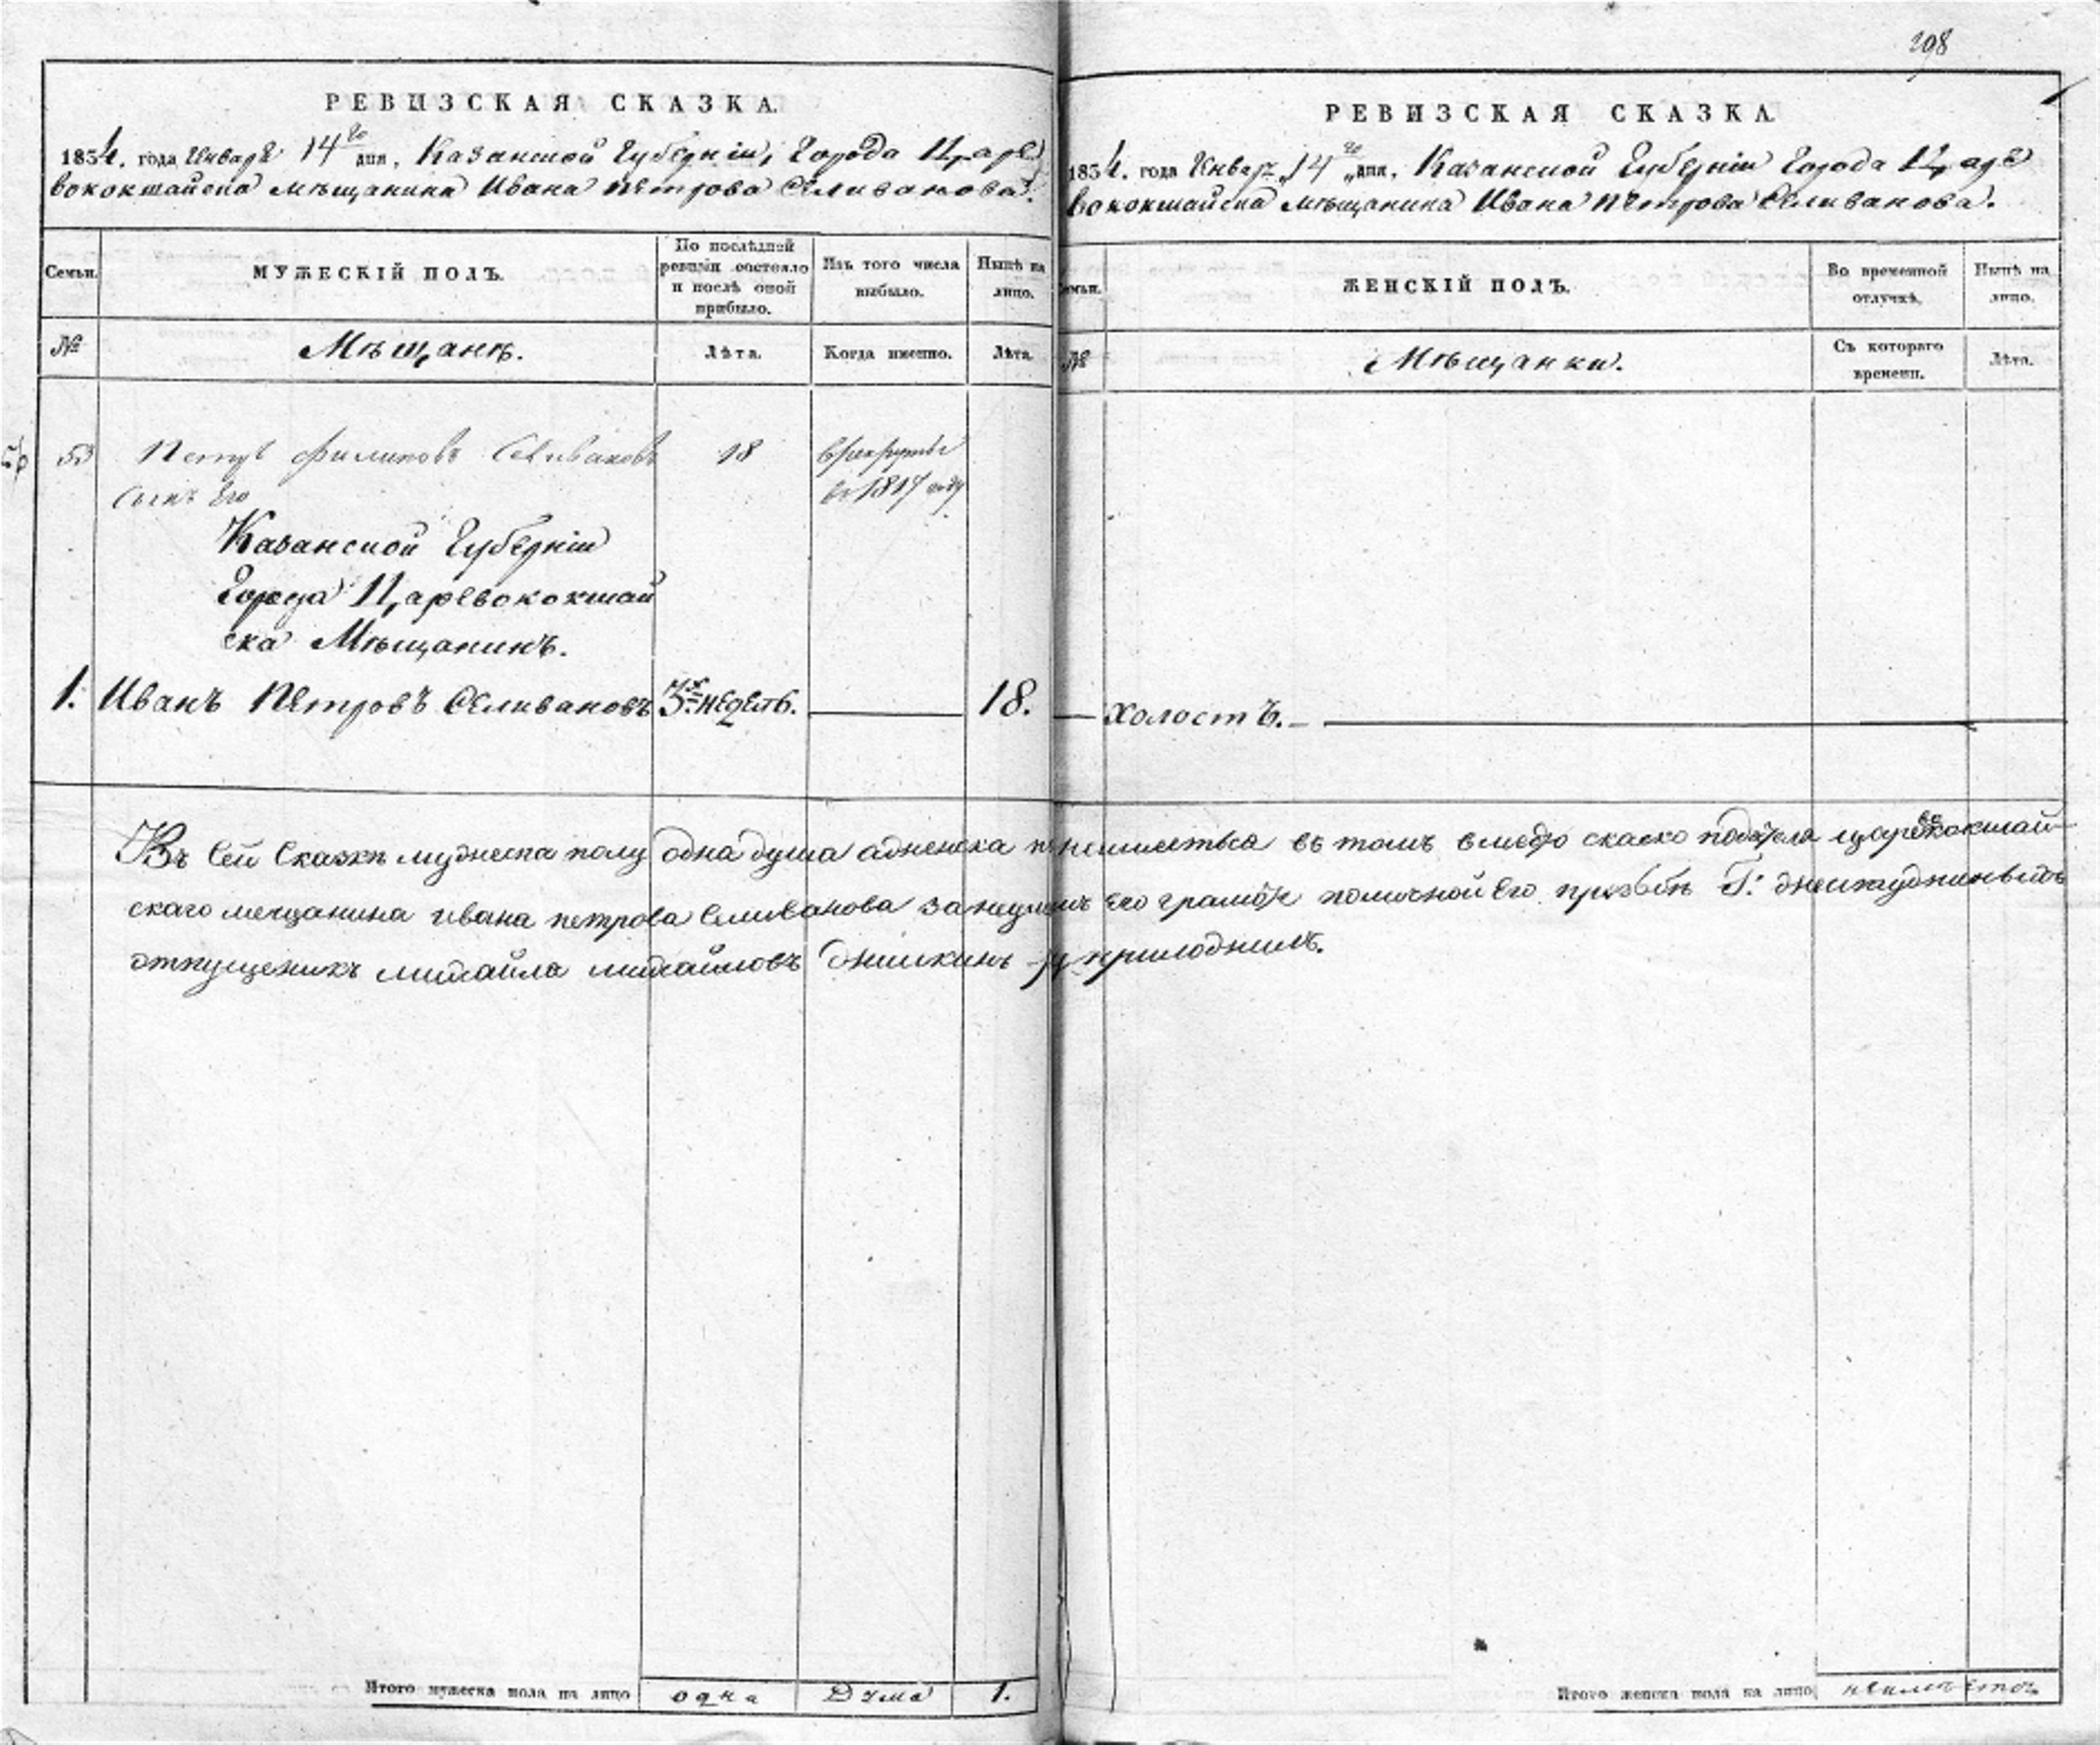 298
РЕВИЗСКАЯ СКАЗКА.
1834. года Января 14го дня, Казанской Губерніи, Города Царе
вококшайска мѣщанина Ивана Петрова Селиванова.
Семьи.
МУЖЕСКІЙ ПОЛЪ.
По послѣдней ревизіи состояло и послѣ оной прибыло.
Изъ того числа выбыло.
Нынѣ на лицо.
№
Мѣщанѣ.
Лѣта.
Когда именно.
Лѣта.
53 Петръ Филиповъ Селивановъ 18 в рекруты
Сынъ Его в 1817 году
Казанской Губерніи
Города Царевококшай
ска Мѣщанинъ.
1. Иванъ Петровъ Селивановъ 3х недель. 18.
Въ сей Сказкѣ мужеска полу одна душа
скаго мещанина Ивана петрова Селиванова
отпущеникъ михайла михайловъ
Итого мужеска пола на лицо одна Душа 1.
РЕВИЗСКАЯ СКАЗКА.
1834. года Январ. 14го дня, Казанской Губерніи Города Царе
вококшайска мѣщанина Ивана Петрова Селиванова.
Семьи.
ЖЕНСКІЙ ПОЛЪ.
Во временной отлучкѣ.
Нынѣ на лицо.
№
Мѣщанки.
Съ котораго времени.
Лѣта.
холостъ.
въ томъ
его
приложилъ.
Итого женска пола на лицо